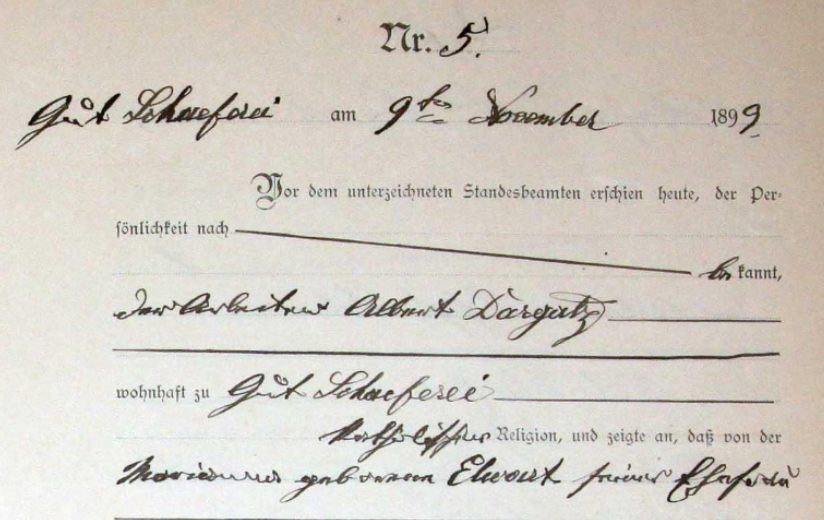 Nr. 5.
Gut Schaeferei am 9ten November 1899
Vor dem unterzeichneten Standesbeamten erschien heute, der Per-
sönlichkeit nach
be kannt,
der Arbeiter Albert Dargatz
wohnhaft zu Gut Schaeferei
katholischer Religion, und zeigte an, daß von der
geborenen Elwart seiner Ehefrau